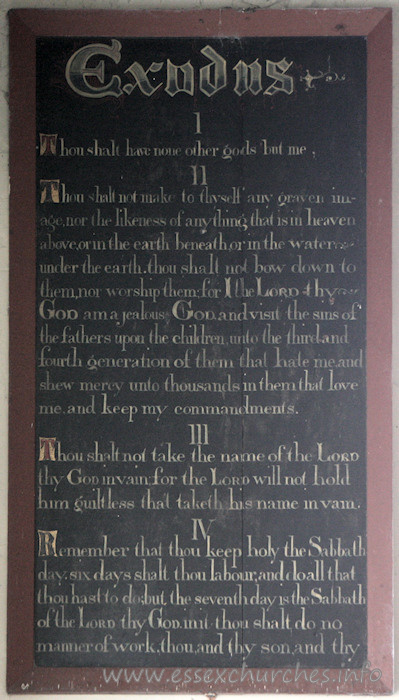 Exodus
I
Thou shalt have none other gods but me.
II
Thou shalt not make to thyself any graven im-
age, nor the likeness of any thing that is in heaven
above, or in the earth beneath, or in the water
under the earth. thou shalt not bow down to
them, nor worship them: for I the LORD thy
GOD am a jealous GOD, and visit the sins of
the fathers upon the children, unto the third and
fourth generation of them that hate me, and
shew mercy unto thousands in them that love
me, and keep my commandments.
III
Thou shalt not take the name of the LORD
thy GOD in vain: for the LORD will not hold
him guiltless that taketh his name in vain.
IV
Remember that thou keep holy the Sabbath
day: six days shalt thou labour, and do all that
thou hast to do; but, the seventh day is the Sabbath
of the LORD thy GOD. in it thou shalt do no
manner of work, thou, and thy son, and thy
www.essexchurches.info